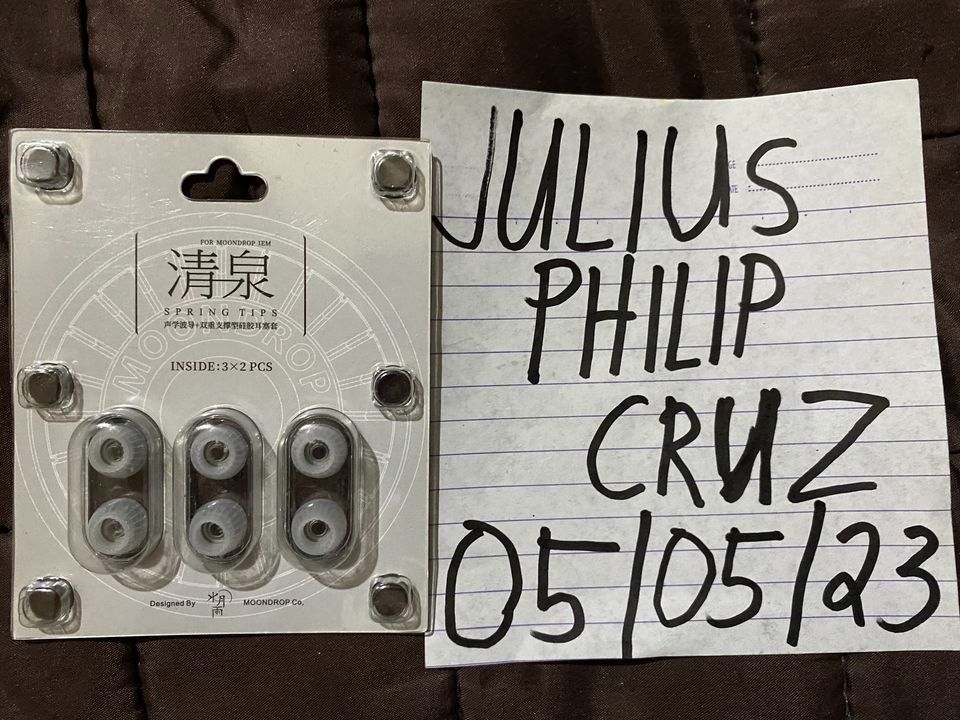 FOR MOONDROP IEM
清泉
SPRING TIPS
声学波导+双重支撑型硅胶耳塞套
MOONDROP
INSIDE:3×2 PCS
Designed By 水月雨 MOONDROP Co,
JULIUS
PHILIP
CRUZ
05/05/23